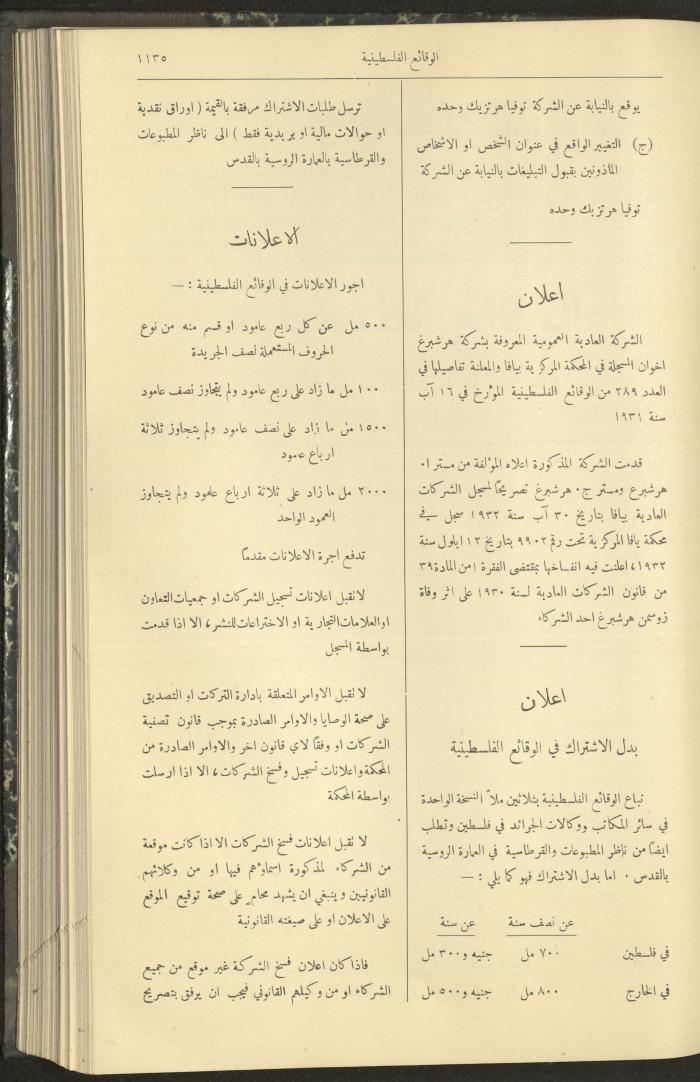 الوقائع الفلسطينية
١١٣٥
يوقع بالنيابة عن الشركة توفيا هرتزبك وحده
(ج) التغيير الواقع في عنوان الشخص او الاشخاص
الماذونين بقبول التبليغات بالنيابة عن الشركة
توفيا هرتزبك وحده
اعلان
الشركة العادية العمومية المعروفة بشركة هرشبرغ
اخوان المسجلة في المحكمة المركزية بيافا والمعلنة تفاصيلها في
العدد ٢٨٩ من الوقائع الفلسطينية المؤرخ في ١٦ آب
سنة ١٩٣١
قدمت الشركة المذكورة اعلاه المؤلفة من مستر ا٠
هرشبرغ ومستر ج٠ هرشبرغ تصريحًا لمسجل الشركات
العادية بيافا بتاريخ ٣٠ آب سنة ١٩٣٢ سجل في
محكمة يافا المركزية تحت رقم ٩٩٠٢ بتاريخ ١٢ ايلول سنة
١٩٣٢، اعلنت فيه انفساخها بمقتضى الفقرة ١ من المادة ٣٩
من قانون الشركات العادية لسنة ١٩٣٠ على اثر وفاة
زوسمن هرشبرغ احد الشركاء
اعلان
بدل الاشتراك في الوقائع الفلسطينية
تباع الوقائع الفلسطينية بثلاثين ملاً النسخة الواحدة
في سائر المكاتب ووكالات الجرائد في فلسطين وتطلب
ايضًا من ناظر المطبوعات والقرطاسية في العمارة الروسية
بالقدس ٠ اما بدل الاشتراك فهو كما يلي : —
عن نصف سنة عن سنة
في فلسطين ٧٠٠ مل جنيه و٣٠٠ مل
في الخارج ٨٠٠ مل جنيه و٥٠٠ مل
ترسل طلبات الاشتراك مرفقة بالقيمة ( اوراق نقدية
او حوالات مالية او بريدية فقط ) الى ناظر المطبوعات
والقرطاسية بالعمارة الروسية بالقدس
الاعلانات
اجور الاعلانات في الوقائع الفلسطينية : —
٥٠٠ مل عن كل ربع عامود او قسم منه من نوع
الحروف المستعملة لصف الجريدة
١٠٠٠ مل ما زاد على ربع عامود ولم يتجاوز نصف عامود
١٥٠٠ مل ما زاد على نصف عامود ولم يتجاوز ثلاثة
ارباع عمود
٢٠٠٠ مل ما زاد على ثلاثة ارباع عامود ولم يتجاوز
العمود الواحد
تدفع اجرة الاعلانات مقدمًا
لا تقبل اعلانات تسجيل الشركات او جمعيات التعاون
او العلامات التجارية او الاختراعات للنشر، الا اذا قدمت
بواسطة المسجل
لا تقبل الاوامر المتعلقة بادارة التركات او التصديق
على صحة الوصايا والاوامر الصادرة بموجب قانون تصفية
الشركات او وفقًا لاي قانون اخر والاوامر الصادرة من
المحكمة واعلانات تسجيل وفسخ الشركات، الا اذا ارسلت
بواسطة المحكمة
لا تقبل اعلانات فسخ الشركات الا اذا كانت موقعة
من الشركاء المذكورة اسماؤهم فيها او من وكلائهم
القانونيين وينبغي ان يشهد محامٍ على صحة توقيع الموقع
على الاعلان او على صبغته القانونية
فاذا كان اعلان فسخ الشركة غير موقع من جميع
الشركاء او من وكيلهم القانوني فيجب ان يرفق بتصريح